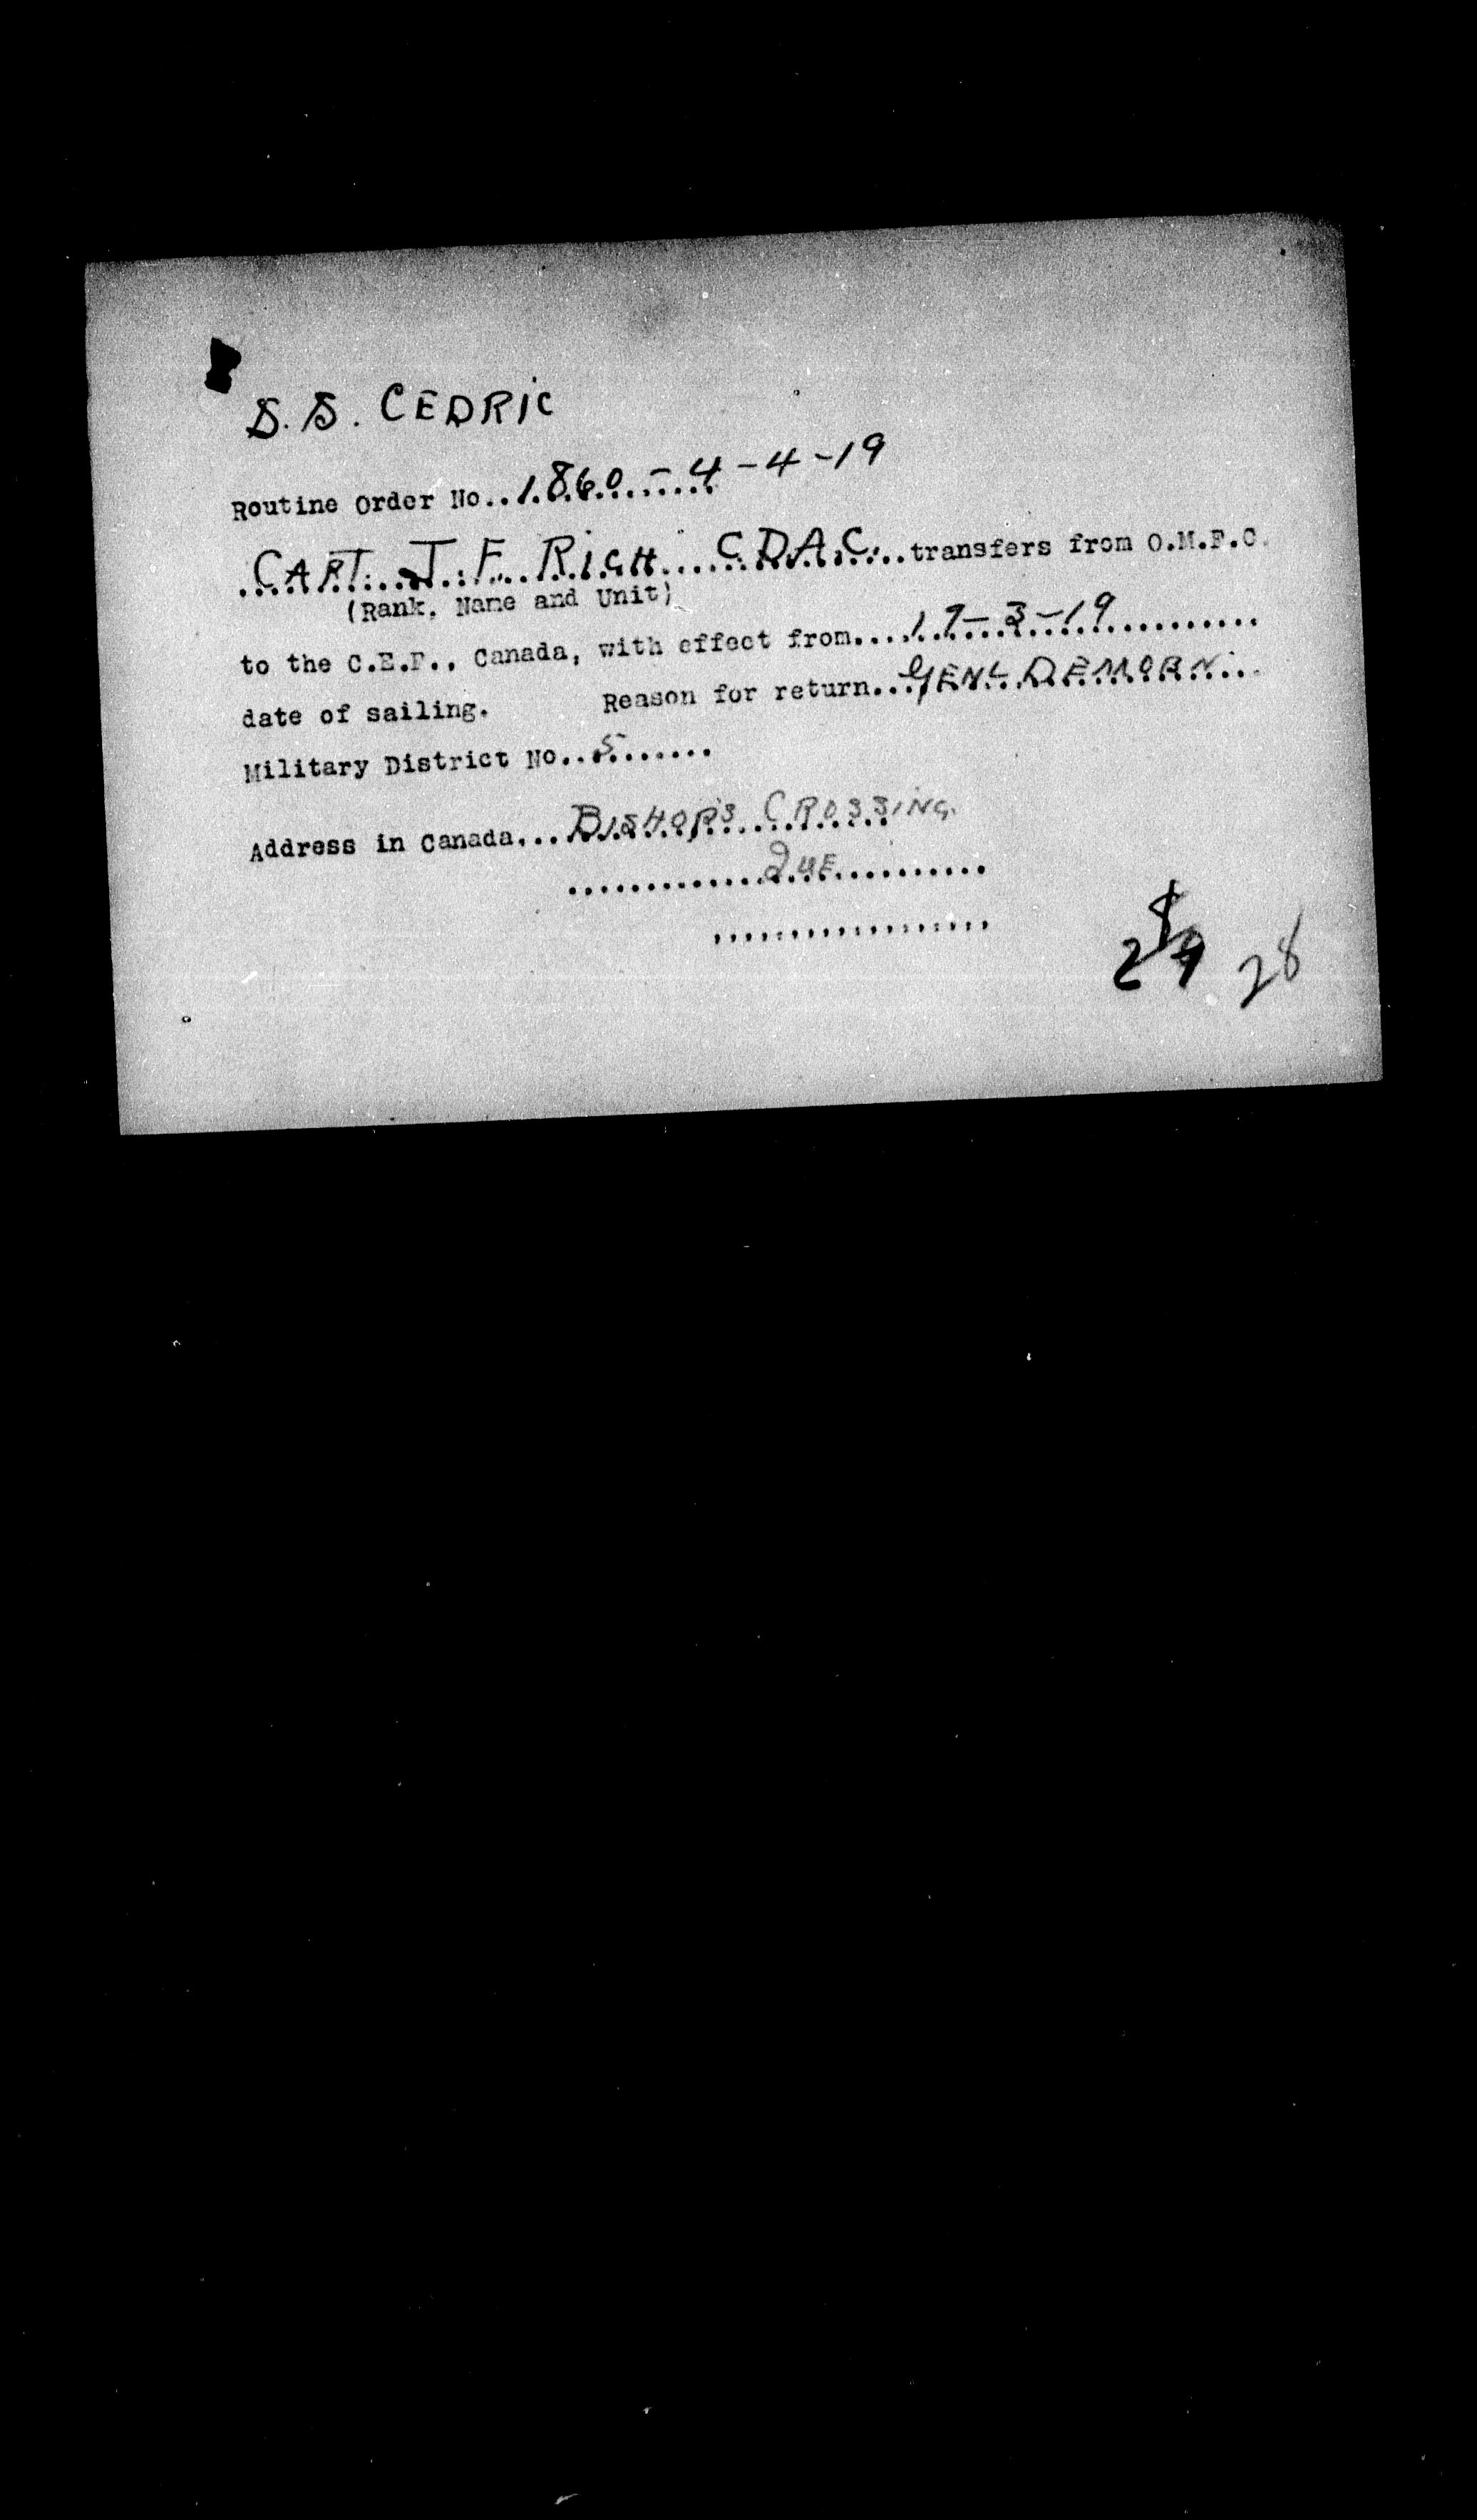 S.S. CEDRIC
Routine Order No..1860-4-4-19
CAPT. J. F. RICH C.D.A.C. transfers from O.M.F.C.
(Rank, Name and Unit)
to the C.E.F., Canada, with effect from....17-3-19
date of sailing. Reason for return..GENL DEMOBN.
Military District No..5.......
Address in Canada...BISHOP'S CROSSING.
QUE
28